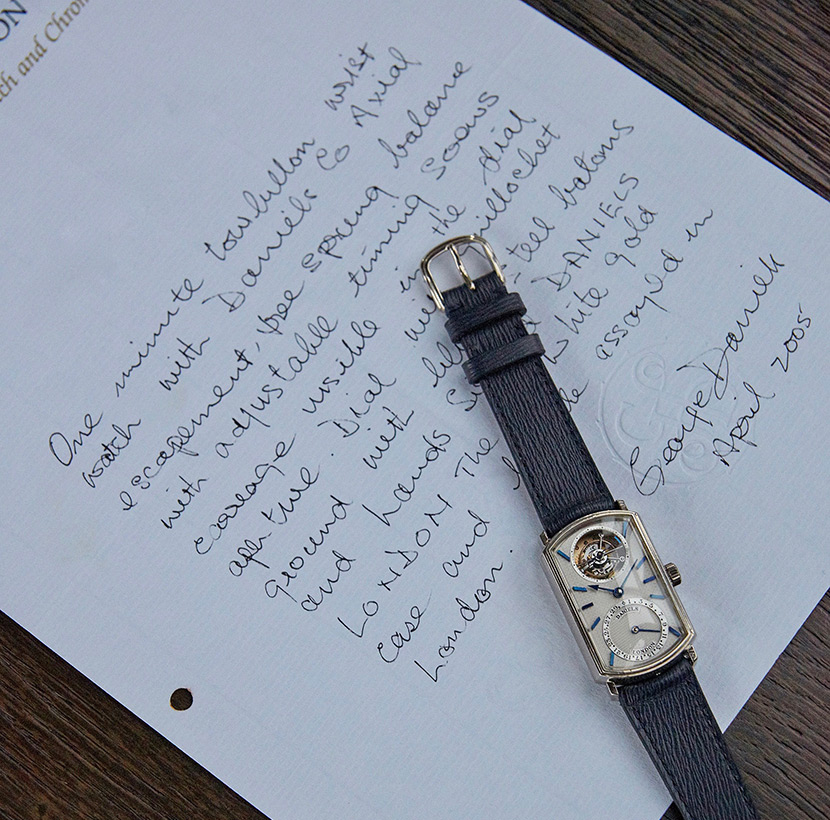 ON
ch and Chron
One minute tourbillon wrist
watch with Daniels Co Axial
escapement, free sprung balance
with adjustable timing screws
carriage visible in the dial
aperture. Dial guillochet
ground with batons
and hands DANIELS
LONDON The white gold
case and assayed in
London.
George Daniels
April 2005
DANIELS
LONDON